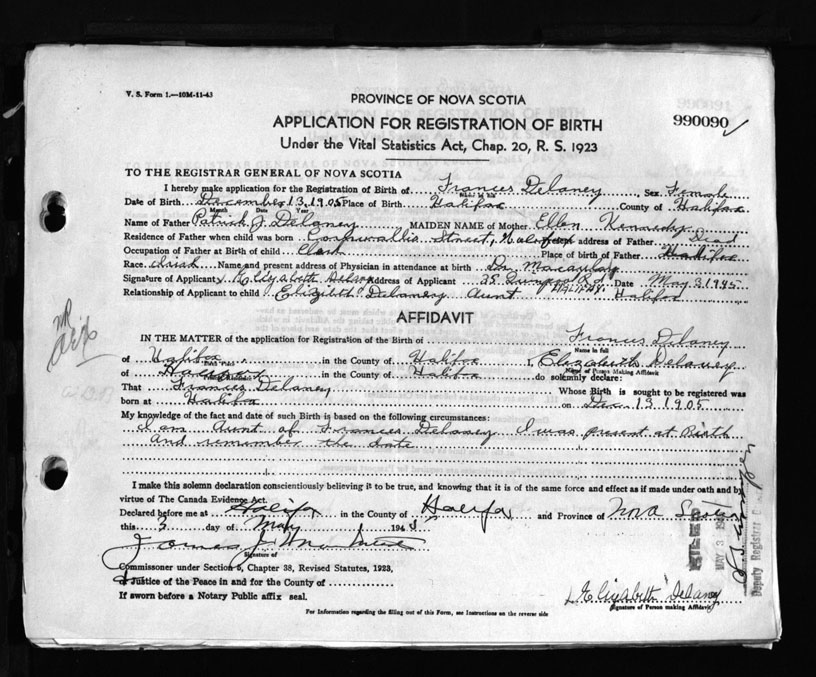 V. S. Form 1.—10M-11-43
PROVINCE OF NOVA SCOTIA
APPLICATION FOR REGISTRATION OF BIRTH
990090
Under the Vital Statistics Act, Chap. 20, R. S. 1923
TO THE REGISTRAR GENERAL OF NOVA SCOTIA
I hereby make application for the Registration of Birth of Frances Delaney Sex Female
Date of Birth December 13, 1905 Place of Birth Halifax County of Halifax
Month Date Year
Name of Father Patrick J. Delaney MAIDEN NAME of Mother Ellen Kennedy
Residence of Father when child was born Cornwallis Street, Halifax address of Father Dead
Occupation of Father at Birth of child Clerk Place of birth of Father Halifax
Race Irish Name and present address of Physician in attendance at birth Dr. Macaulay
Signature of Applicant Elizabeth Delaney Address of Applicant 25 Date May 3 1945
Relationship of Applicant to child Elizibeth Delaney Aunt Halifax
AFFIDAVIT
IN THE MATTER of the application for Registration of the Birth of Frances Delaney
Name in full
of Halifax in the County of Halifax I, Elizabeth Delaney
Name of Person Making Affidavit
of in the County of Halifax do solemnly declare:
That Frances Delaney Whose Birth is sought to be registered was
born at Halifax on Dec. 13 1905
My knowledge of the fact and date of such Birth is based on the following circumstances:
I am Aunt of Frances Delaney I was present at Birth
and remember the date
I make this solemn declaration conscientiously believing it to be true, and knowing that it is of the same force and effect as if made under oath and by
virtue of The Canada Evidence Act.
Declared before me at Halifax in the County of Halifax and Province of Nova Scotia
this 3 day of May 194
Signature of
Commissioner under Section 5, Chapter 38, Revised Statutes, 1923,
or Justice of the Peace in and for the County of
If sworn before a Notary Public affix seal.
Elizabeth Delaney
(Signature of Person making Affidavit)
For Information regarding the filling out of this Form, see Instructions on the reverse side
FILED
MAY 3
Deputy Registrar